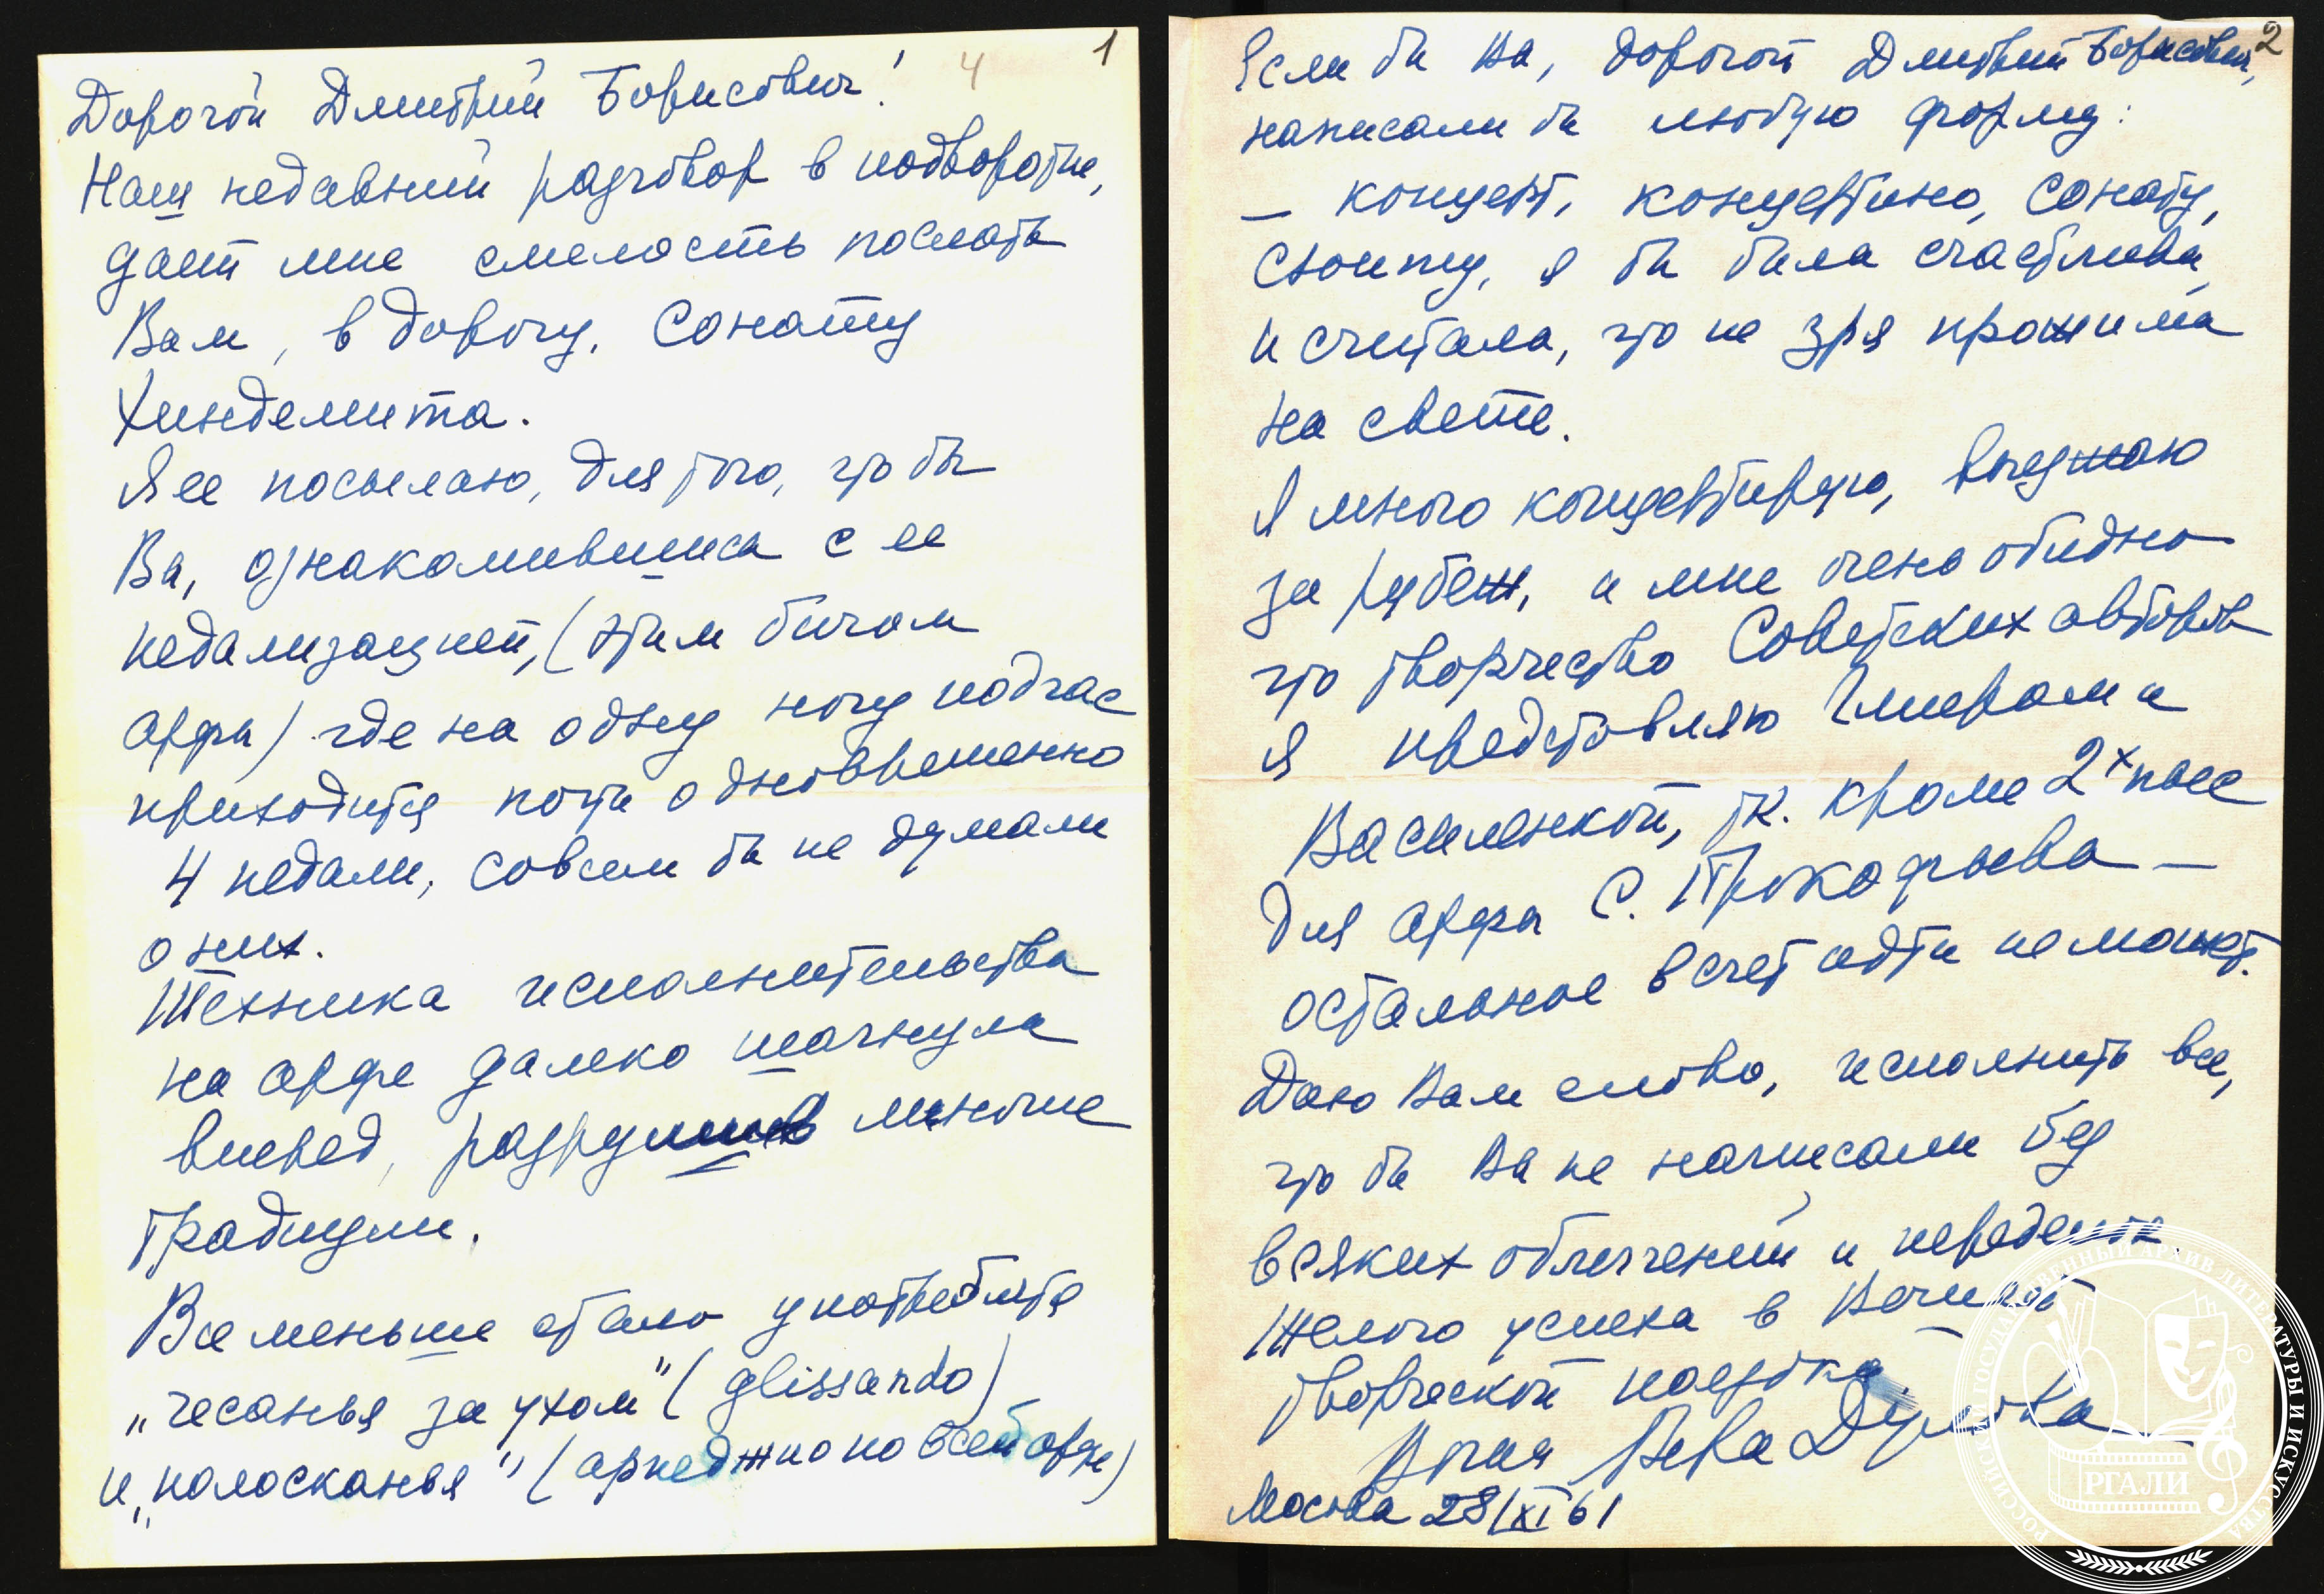 4
1
Дорогой Дмитрий Борисович!
Наш недавний разговор в подворотне,
дает мне смелость послать
Вам, в дорогу, Сонату
Хиндемита.
Я ее посылаю, для того, что бы
Вы, ознакомившись с ее
педализацией, (этим бичом
арфы) где на одну ногу подчас
приходится почти одновременно
4 педали, совсем бы не думали
о них.
Техника исполнительства
на арфе далеко шагнула
вперед, разрушив многие
традиции.
Все меньше стало употребляться
„чесанья за ухом" (glissando)
и „полосканья" (арпеджио по всей арфе)
2
Если бы Вы, дорогой Дмитрий Борисович,
написали бы любую форму:
— концерт, концертино, сонату,
сюиту, я бы была счастлива,
и считала, что не зря прожила
на свете.
Я много концертирую, выезжаю
за рубеж, и мне очень обидно
что творчество Советских авторов
я представляю Глиером и
Василенкой, т.к. кроме 2х пьес
для арфы С. Прокофьева —
остальное в счет идти не может.
Даю Вам слово, исполнить все,
что бы Вы не написали без
всяких облегчений и переделок
Желаю успеха в Вашей
творческой поездке.
Ваша Вера Дулова
Москва 28/XI 61
РОССИЙСКИЙ ГОСУДАРСТВЕННЫЙ АРХИВ ЛИТЕРАТУРЫ И ИСКУССТВА
РГАЛИ